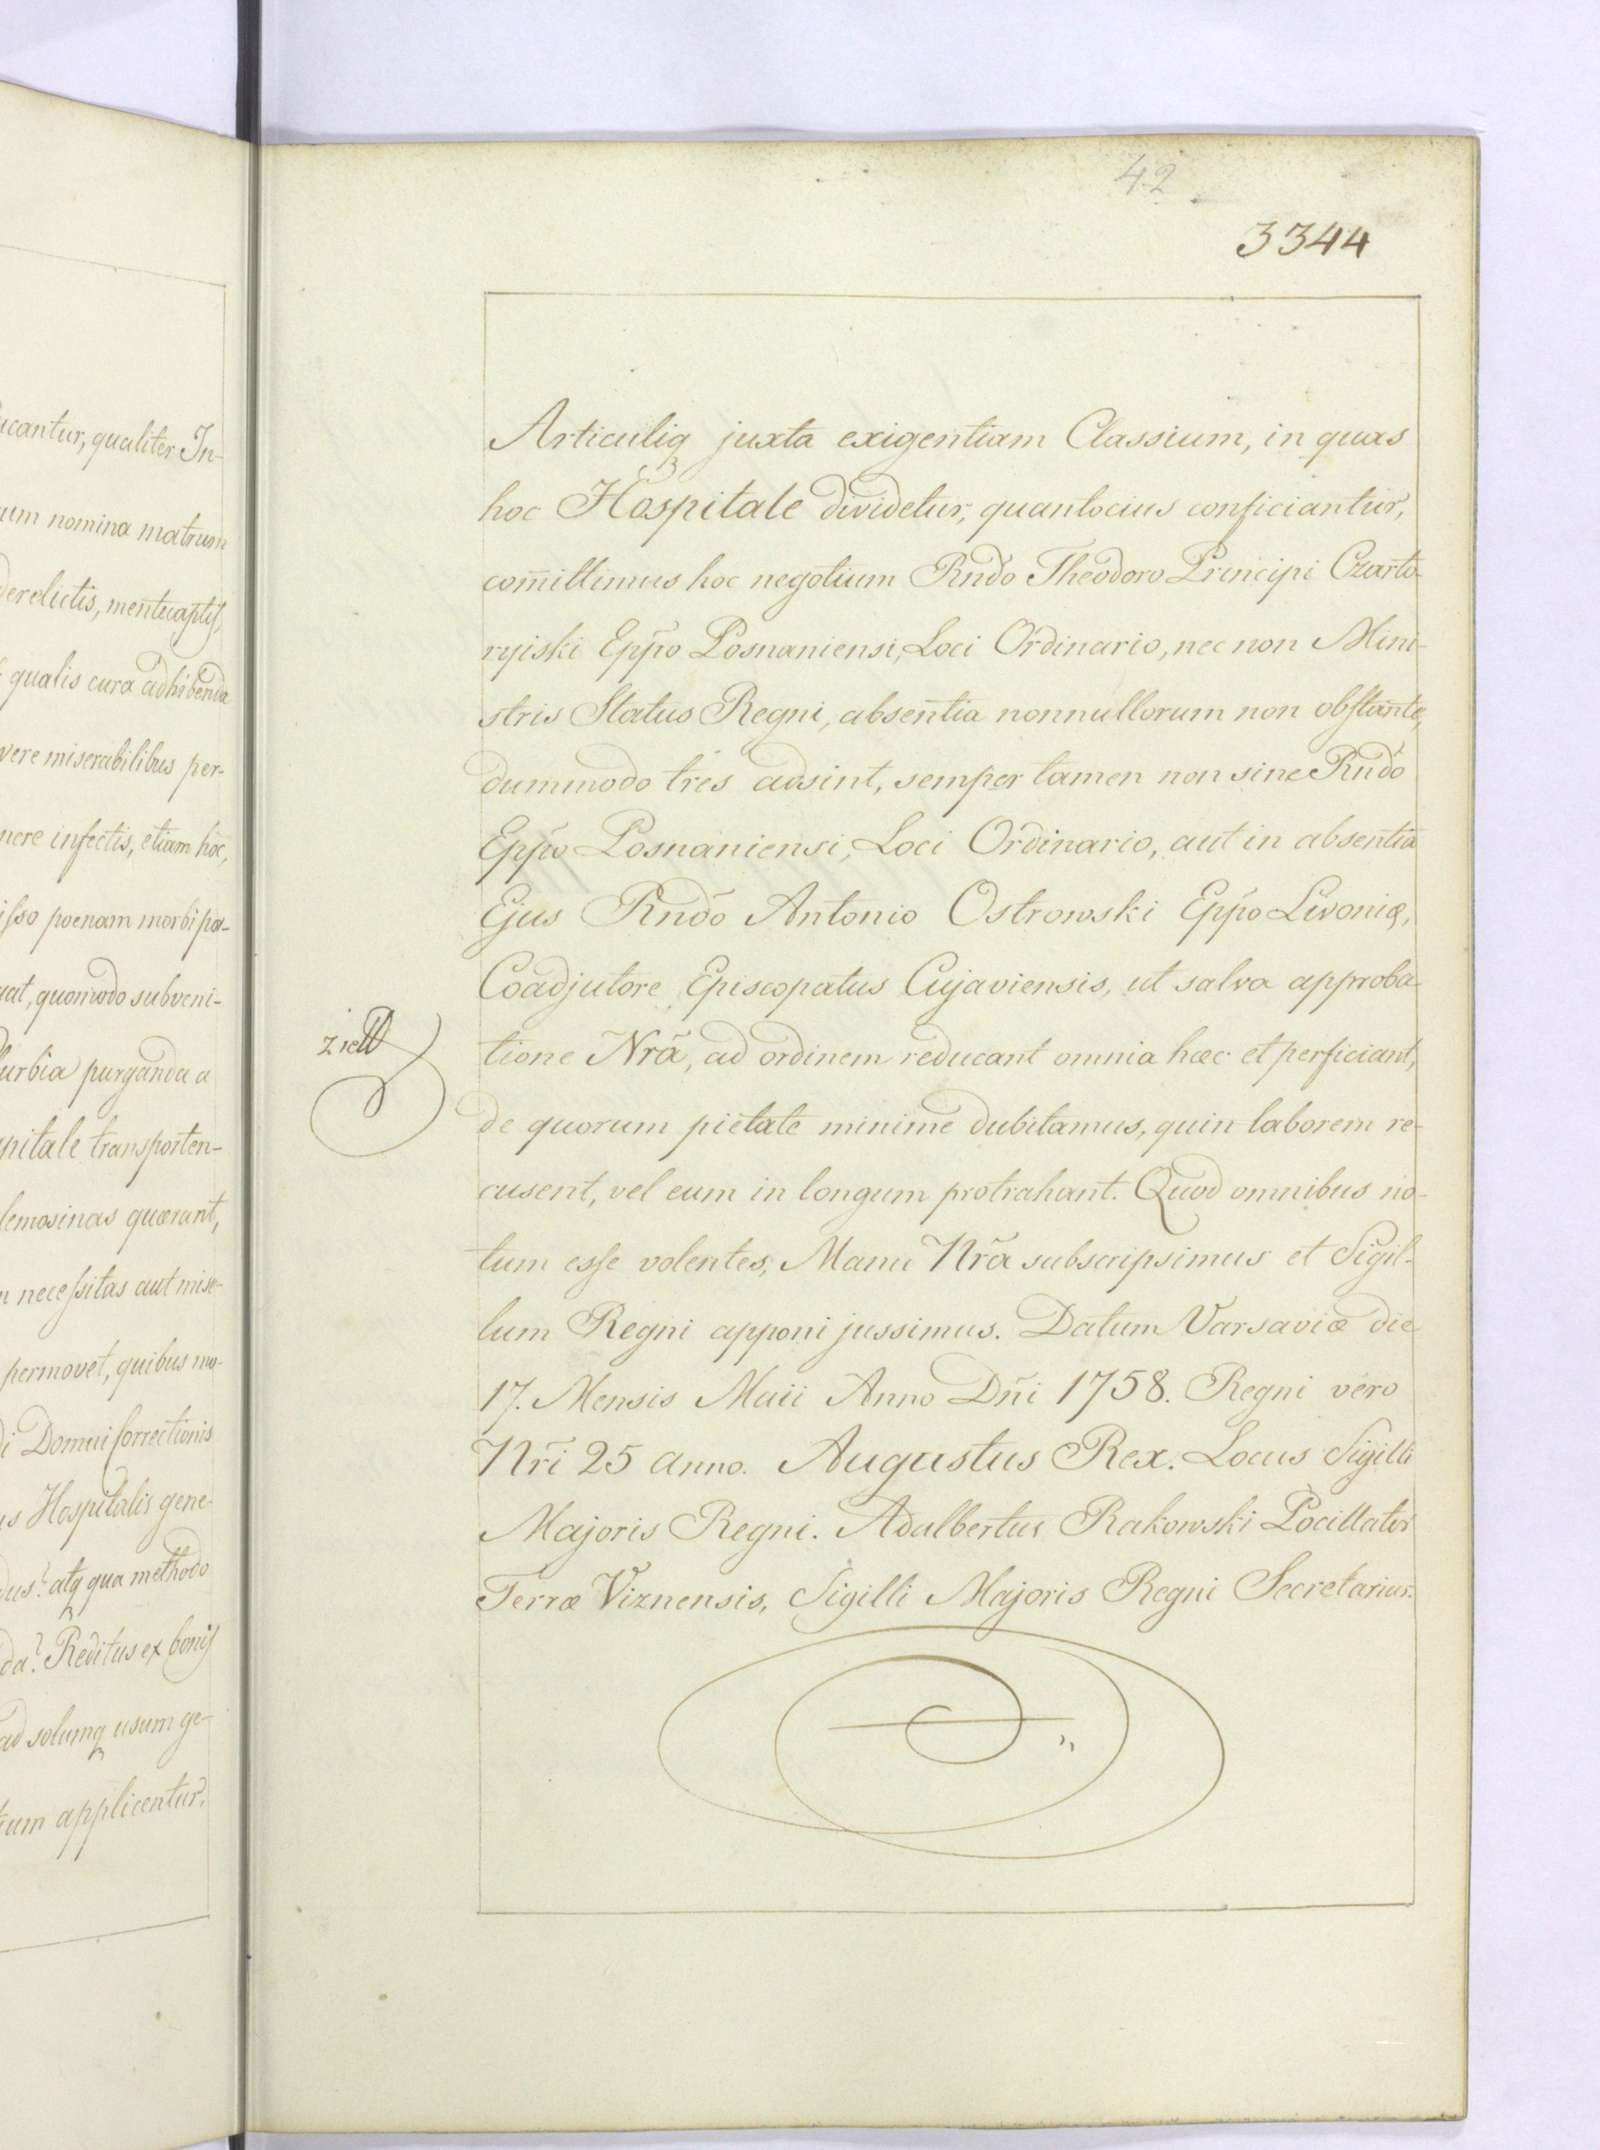 42
3344
Articuliq juxta exigentiam Classium, in quas
hoc Hospitale dividetur, quantocius conficiantur,
com̃ittimus hoc negotium Rndo Theodoro Principi Czarto-
ryiski Eppo Posnaniensi, Loci Ordinario, nec non Mini-
stris Status Regni, absentia nonnullorum non obstante,
dummodo tres adsint, semper tamen non sine Rndo
Eppo Posnaniensi, Loci Ordinario, aut in absentia
Ejus Rndo Antonio Ostrowski Eppo Livoniæ,
Coadjutore Episcopatus Cujaviensis, ut salva approba-
tione Nrã, ad ordinem reducant omnia hæc et perficiant,
de quorum pietate minime dubitamus, quin laborem re-
cusent, vel eum in longum protrahant. Quod omnibus no-
tum esse volentes, Manu Nrã subscripsimus et Sigil-
lum Regni apponi jussimus. Datum Varsaviæ die
17. Mensis Maii Anno Dñi 1758. Regni vero
Nrĩ 25 anno. Augustus Rex. Locus Sigilli
Majoris Regni. Adalbertus Rakowski Pocillator
Terræ Viznensis, Sigilli Majoris Regni Secretarius.
ucantur, qualiter In-
um nomina matrum
derelictis, mentecaptis,
qualis cura adhibenda
vere miserabilibus per-
nere infectis, etiam hoc,
isso poenam morbi pa-
at, quomodo subveni-
urbia purganda a
pitale transporten-
lemosinas quærant,
n necessitas aut mise-
permovet, quibus mo-
di Domui correctionis
is Hospitalis gene-
dus? atq qua methodo
da? Reditus ex bonis
ad solumq usum ge-
tium applicentur.